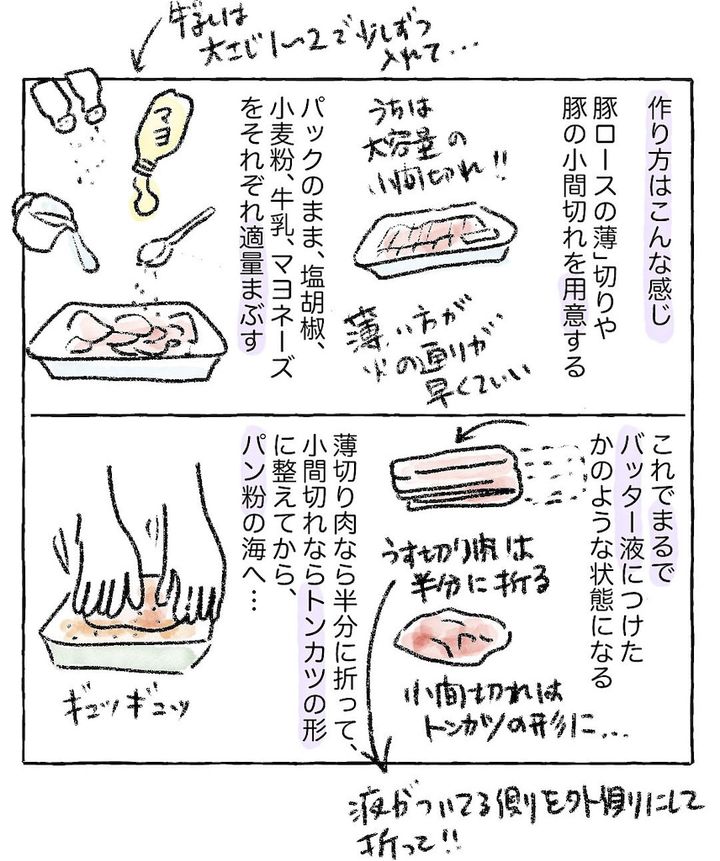 牛乳は
大さじ1〜2で少しずつ
入れて…
作り方はこんな感じ
豚ロースの薄」切りや
豚の小間切れを用意する
うちは
大容量の
小間切れ!!
薄い方が
火の通りが
早くていい
パックのまま、塩胡椒、
小麦粉、牛乳、マヨネーズ
をそれぞれ適量まぶす
マヨ
これでまるで
バッター液につけた
かのような状態になる
うす切り肉は
半分に折る
小間切れは
トンカツの形に…
薄切り肉なら半分に折って、
小間切れならトンカツの形
に整えてから、
パン粉の海へ…
ギュッギュッ
液がついてる側りを外側りにして
折って!!